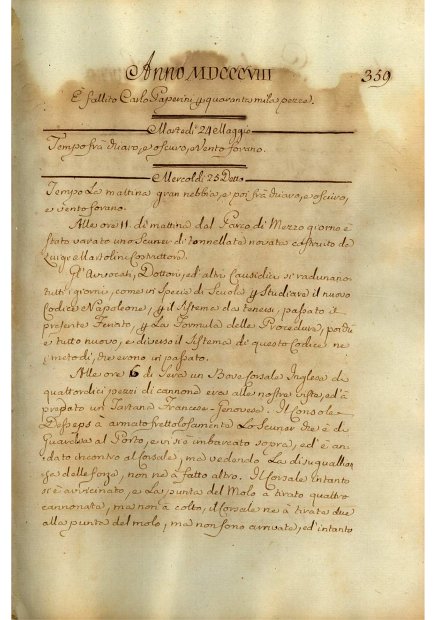 Anno MDCCCVIII 359
E' fallito Carlo Paperini p quaranta mila pezze.
Martedì 24 Maggio
Tempo frà chiaro, e oscuro, e Vento forano.
Mercoldì 25 Detto
Tempo La mattina gran nebbia, e poi frà chiaro, e oscuro,
e vento forano.
Alle ore 11 di mattina dal Parco di Mezzo giorno è
stato varato uno Scuner di tonnellate novata costruito da
Luigi Mazzolini Costruttore.
Gl'Avvocati, Dottori, ed altri Causidici si radunano
tutti i giorni, come in specie di Scuola p Studiare il nuovo
Codice Napoleone, p il Sistema da tenersi, passato il
presente Feriato, p La Formula delle Procedure, poiche
è tutto nuovo, e diverso il Sistema di questo Codice ne
i metodi, che erono in passato.
Alle ore 6 di Sera un Bove Corsale Inglese da
quattordici pezzi di cannone era alle nostre viste, ed à
predato un Tartana Francese-Genovese. Il Console
Desseps à armato frettolosamente Lo Scuner che è di
Guardia al Porto, e vi si è imbarcato sopra, ed è an=
dato incontro al Corsale, ma vedendo La disuguaglian
za delle forze, non ne à fatto altro. Il Corsale intanto
si è avvicinato, e La punta del Molo à tirato quattro
cannonate, ma non à colto, il Corsale ne à tirate due
alla punta del molo, ma non sono arrivate, ed intanto